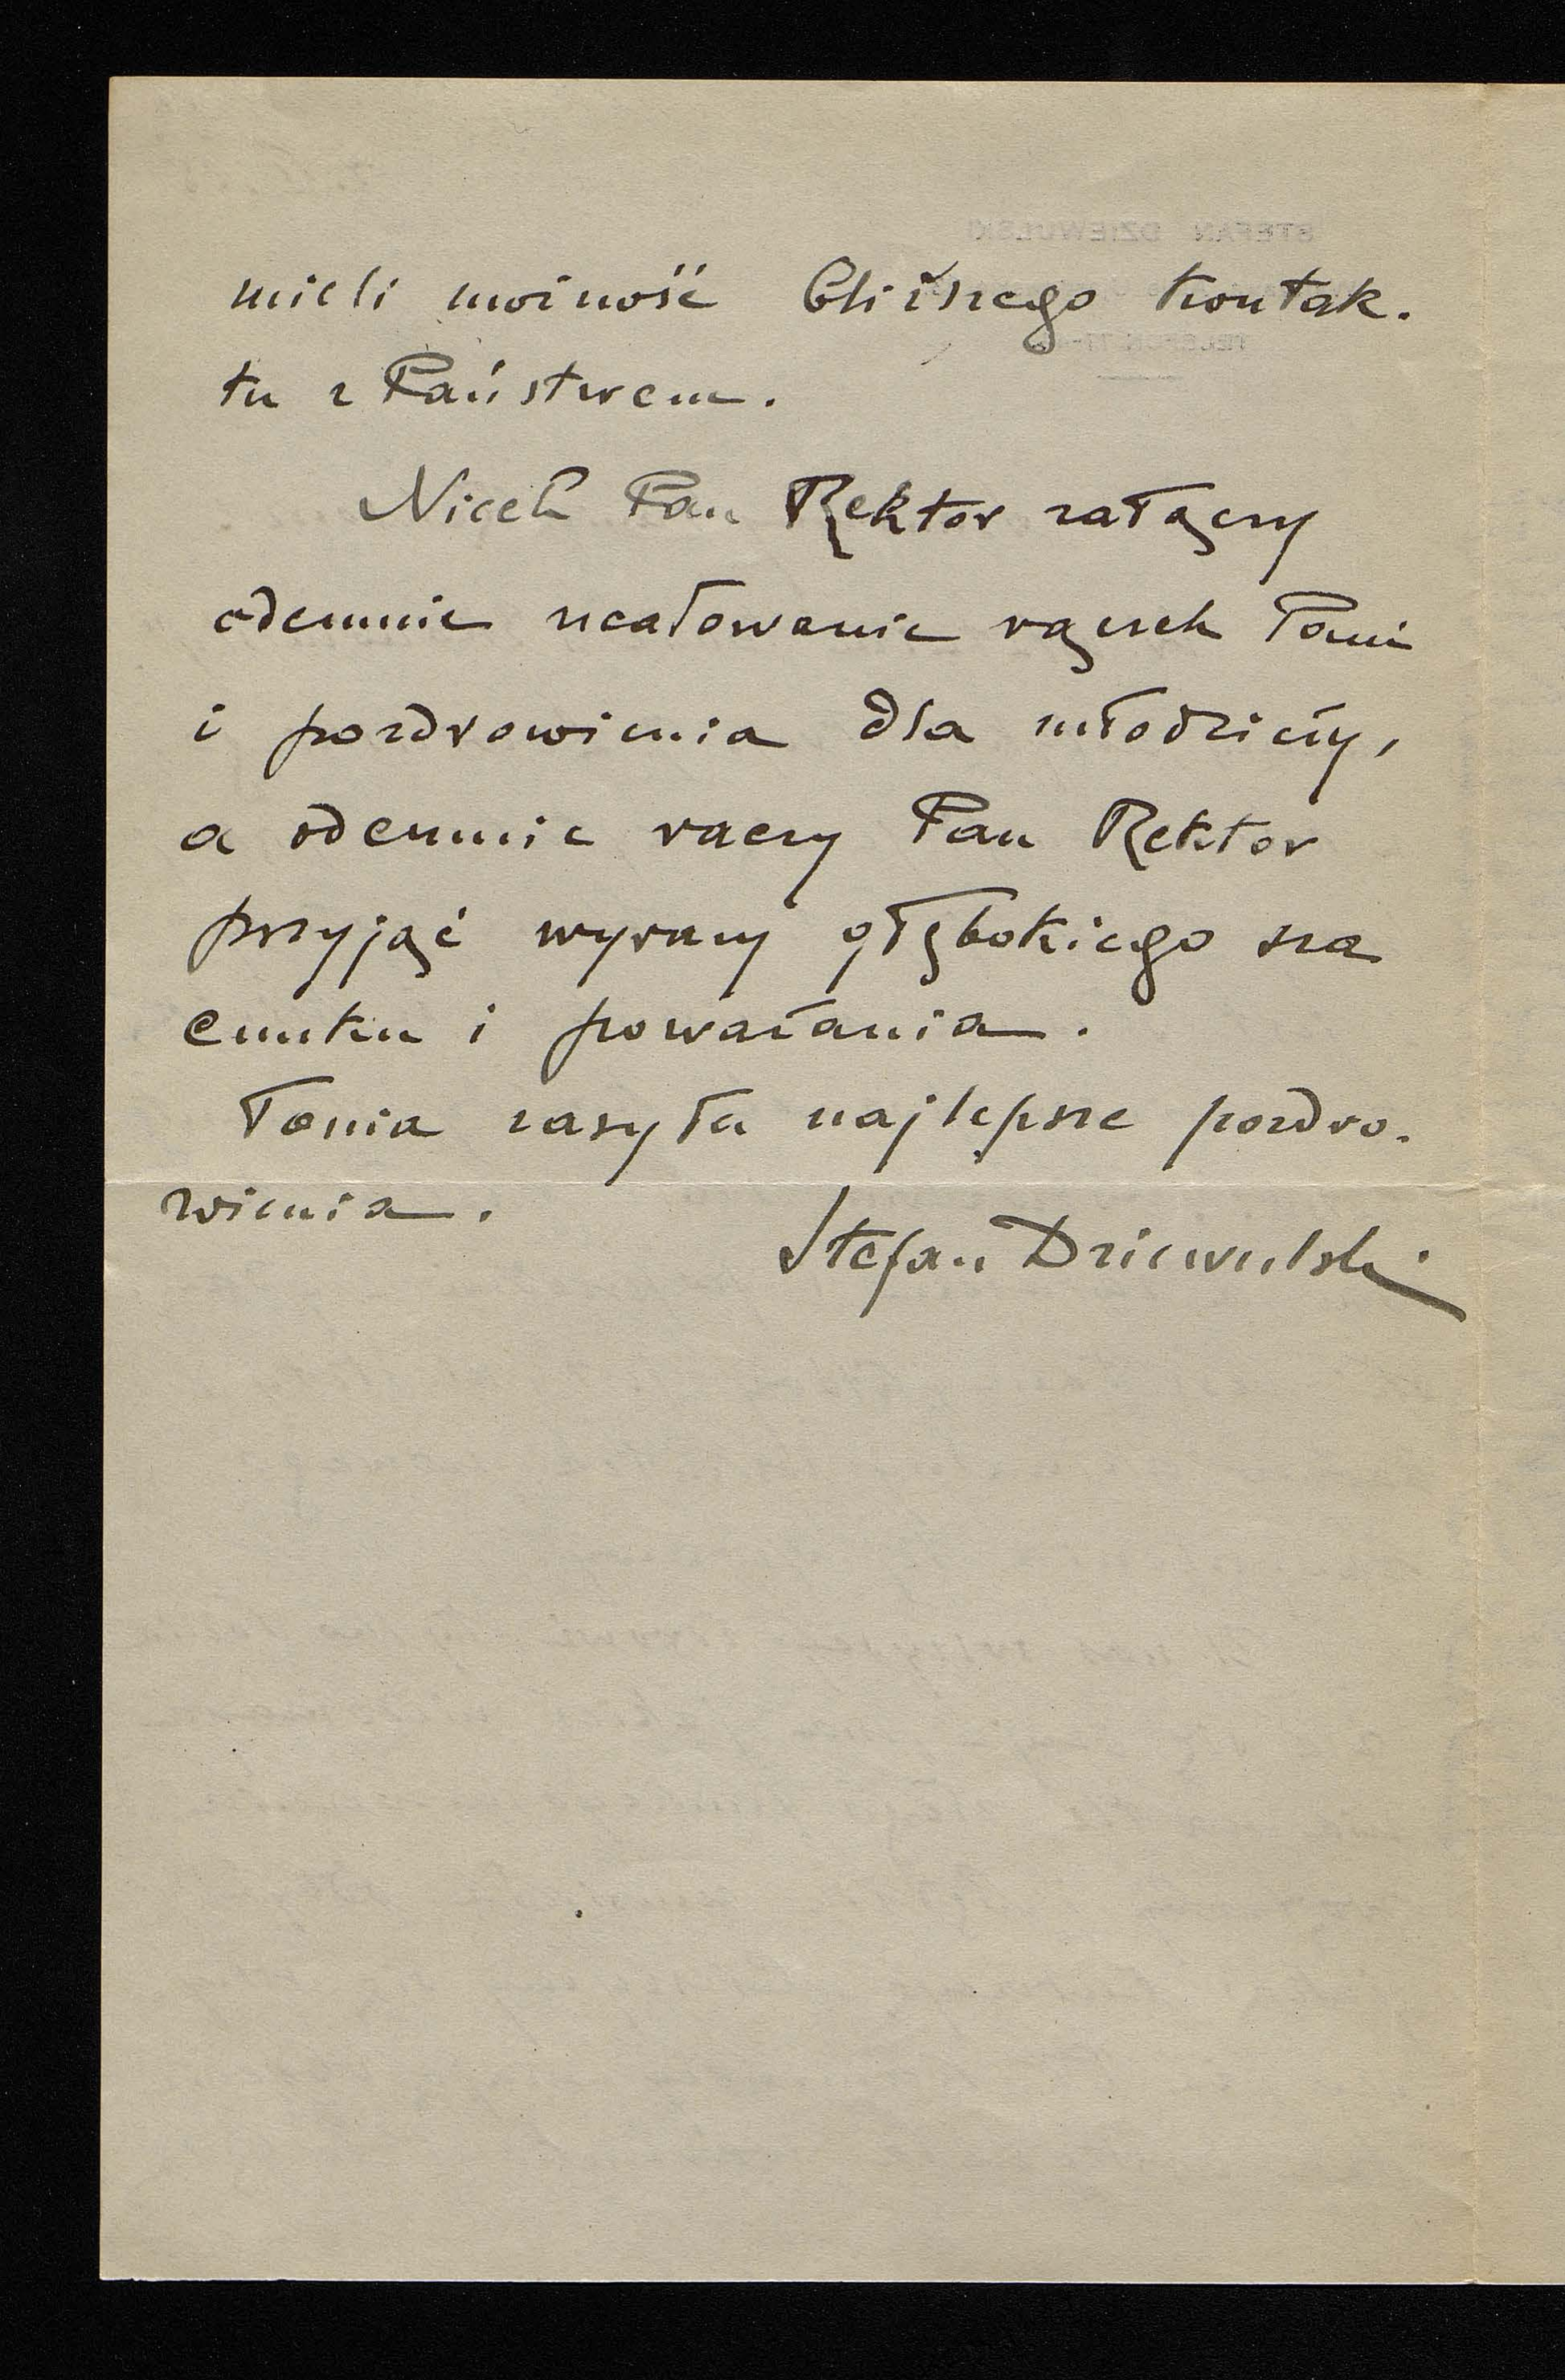 mieli możność bliższego kontak-
tu z Państwem.
Niech Pan Rektor załączy
odemnie ucałowanie rączek Pani
i pozdrowienia dla młodzieży,
a odemnie raczy Pan Rektor
przyjąć wyrazy głębokiego sza
cunku i poważania.
Tonia zasyła najlepsze pozdro-
wienia.
Stefan Dziewulski
STEFAN DZIEWULSKI